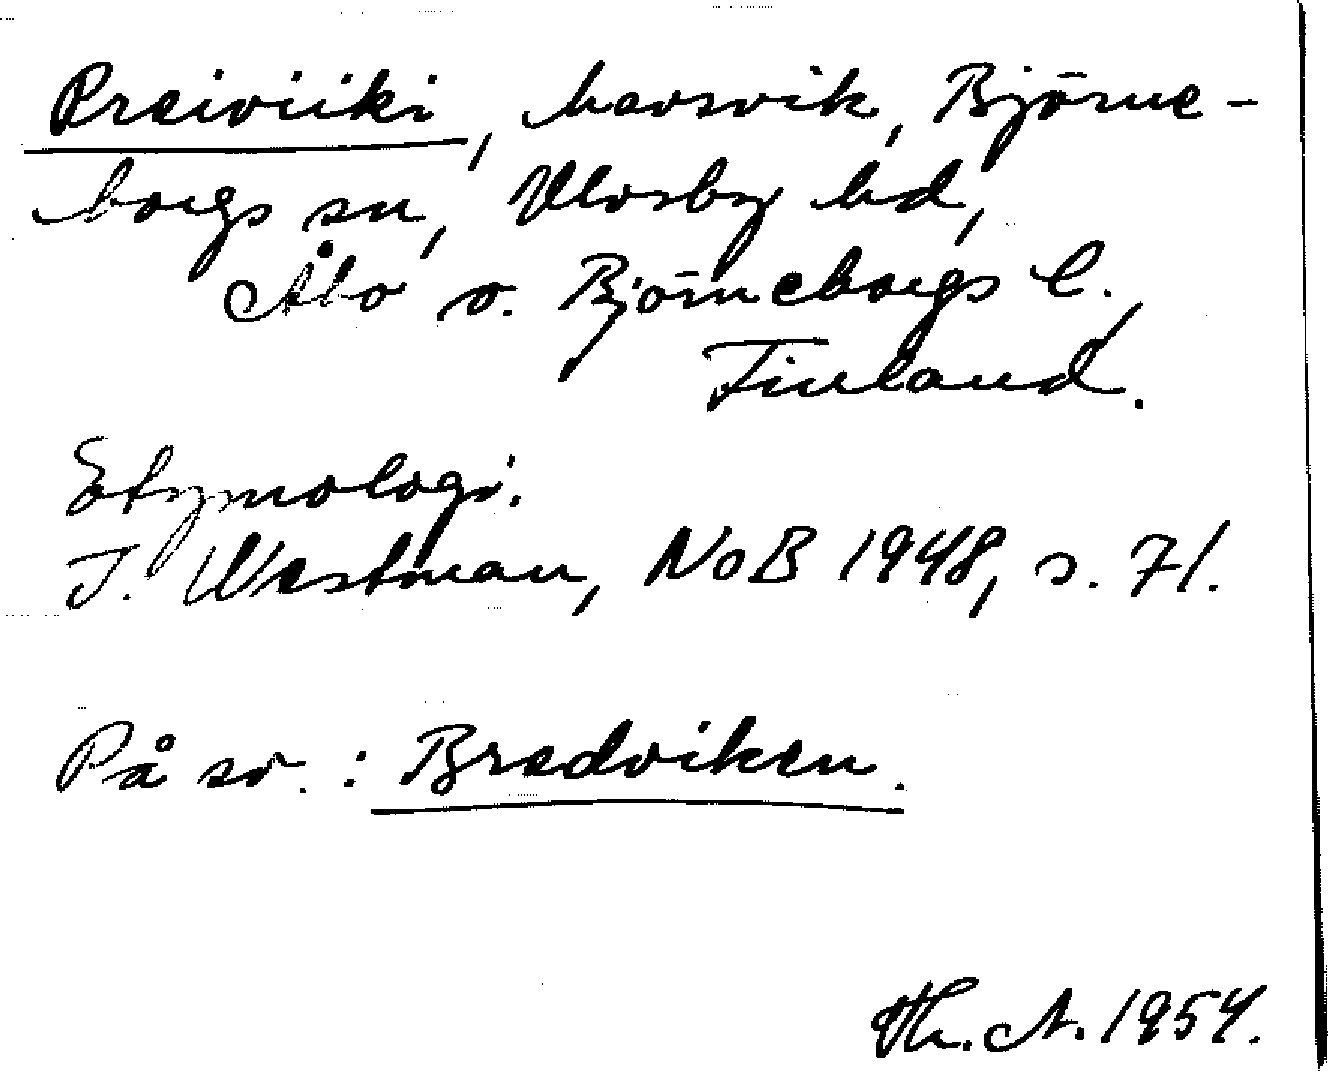 Preiviiki, havsvik, Björne-
borgs sn, Ulvsby hd,
Åbo o. Björneborgs l.,
Finland.
Etymologi.
I. Westman, NoB 1948, s. 71.
På sv.: Bredviken.
Th. A. 1954.